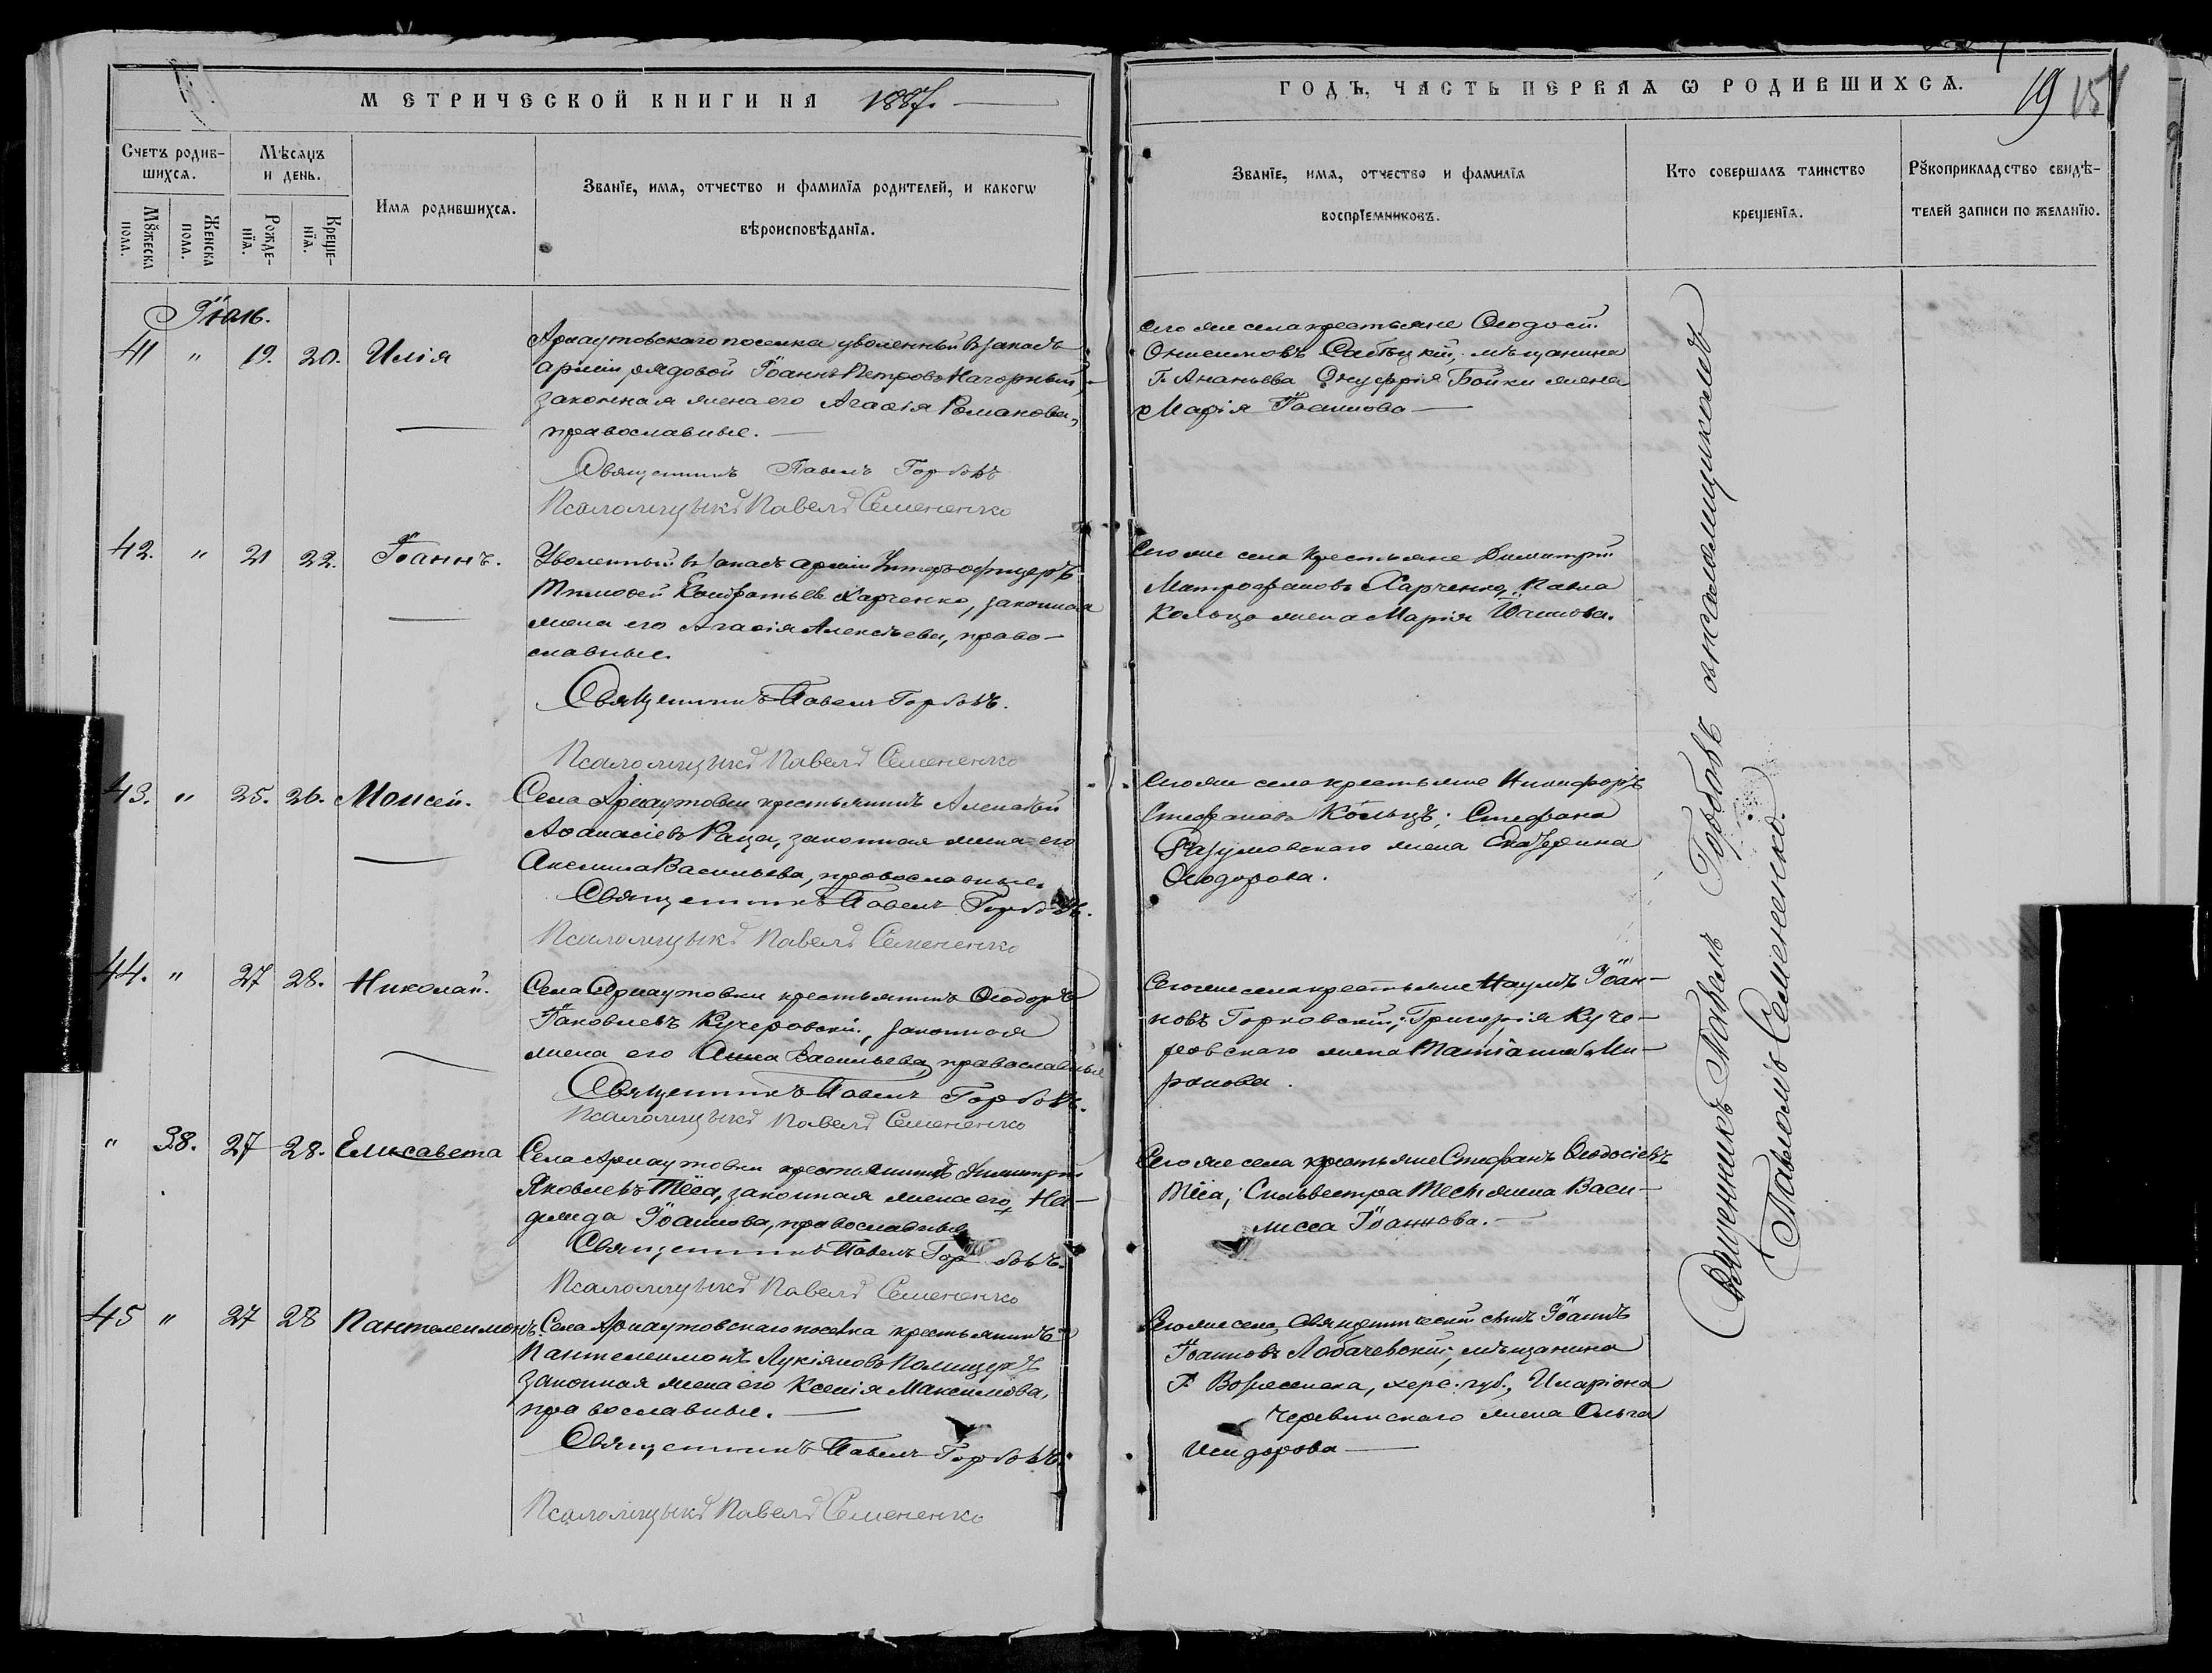 МЕТРИЧЕСКОЙ КНИГИ НА 1887.
ГОДЪ, ЧАСТЬ ПЕРВАЯ Ѡ РОДИВШИХСЯ.
19 15
Счетъ родив-
шихся.
Мѣсяцъ
и день.
Имя родившихся.
Званіе, имя, отчество и фамилія родителей, и какогѡ
вѣроисповѣданія.
Мꙋжеска
пола.
Женска
пола.
Рожде-
нія.
Креще-
нія.
Званіе, имя, отчество и фамилія
воспріемниковъ.
Кто совершалъ таинство
крещенія.
Рꙋкоприкладство свидѣ-
телей записи по желанію.
Іюль.
41 " 19. 20. Илія
Арнаутовскаго поселка уволенный въ запасъ
арміи рядовой Іоаннъ Петровъ Нагорный,
законная жена его Агафія Романова,
православные.
Священникъ Павелъ Горбовъ
Псаломщикъ Павелъ Семененко
Сего же села крестьяне Ѳеодосій
Онисимовъ мѣщанина
Г. Ананьева Онуфрія Бойки жена
Марія Іоаннова
42. " 21 22. Іоаннъ.
Уволенный въ запасъ арміи Унтеръ-офицеръ
Тимоѳей Кондратьевъ Харченко, законная
жена его Агафія Алексѣева, право-
славные.
Священникъ Павелъ Горбовъ.
Псаломщикъ Павелъ Семененко
Сего же села крестьяне Димитрій
Митрофановъ Харченко, Павла
Кольца жена Марія Іоаннова.
43. " 25. 26. Моисей.
Села Арнаутовки крестьянинъ Алексѣй
Аѳанасіевъ Раца, законная жена его
Акелина Васильева, православные.
Священникъ Павелъ Горбовъ.
Псаломщикъ Павелъ Семененко
Сего же села крестьяне Никифоръ
Стефановъ Кольцъ; Стефана
Разумовскаго жена Екатерина
Ѳеодорова.
44. " 27 28. Николай.
Села Арнаутовки крестьянинъ Ѳеодоръ
Іаковлевъ Кучеровскій, законная
жена его Анна Васильева, православные
Священникъ Павелъ Горбовъ.
Псаломщикъ Павелъ Семененко
Сего же села крестьяне Наумъ Іоан-
новъ Горковскій; Григорія Куче-
ровскаго жена Татіанна Ми-
ронова.
" 38. 27 28. Елисавета
Села Арнаутовки крестьянинъ Димитрій
Яковлевъ Тёса, законная жена его, На-
дежда Іоаннова, православные
Священникъ Павелъ Горбовъ.
Псаломщикъ Павелъ Семененко
Сего же села крестьяне Стефанъ Ѳеодосіевъ
Тёса; Сильвестра Тесы жена Васи-
лисса Іоаннова.
45 " 27 28 Пантелеимонъ.
Села Арнаутовскаго поселка крестьянинъ
Пантелеимонъ Лукіяновъ
законная жена его Ксенія Максимова,
православные.
Священникъ Павелъ Горбовъ.
Псаломщикъ Павелъ Семененко
Сего же села, Священническій сынъ Іоаннъ
Іоанновъ Лобачевскій; мѣщанина
Г. Вознесенска, херс. губ., Иларіона
Червинскаго жена Ольга
Исидорова
Священникъ Павелъ Горбовъ съ псаломщикомъ
Павломъ Семененко.